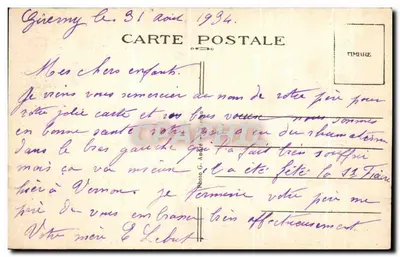 Giverny le 31 août 1934.
CARTE POSTALE
TIMBRE
Mes chers enfants.
Je viens vous remercier au nom de votre père pour
votre jolie carte et vos bons voeux nous sommes
en bonne santé votre père a eu du rhumatisme
dans le bras gauche qui l'a fait bien souffrir
mais ça va mieux la été fêté la St Fiacre
hier à Vernon je termine votre père me
prie de vous embrasser bien affectueusement
Votre mère E Lebret
Photo G.
CARTE